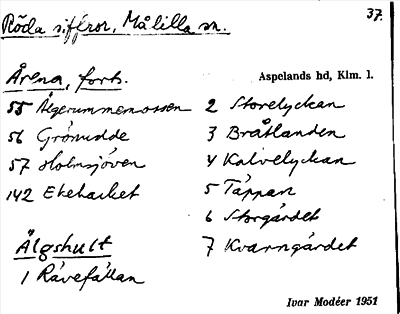 37.
Röda siffror, Målilla sn.
Årena, forts.
Aspelands hd, Klm. l.
55 Älgerummemossen
56 Grönudde
57 Holmsjöven
142 Ekehacket
Älgshult
1 Rävefällan
2 Storelyckan
3 Bråtlanden
4 Kalvelyckan
5 Täppan
6 Storgärdet
7 Kvarngärdet
Ivar Modéer 1951